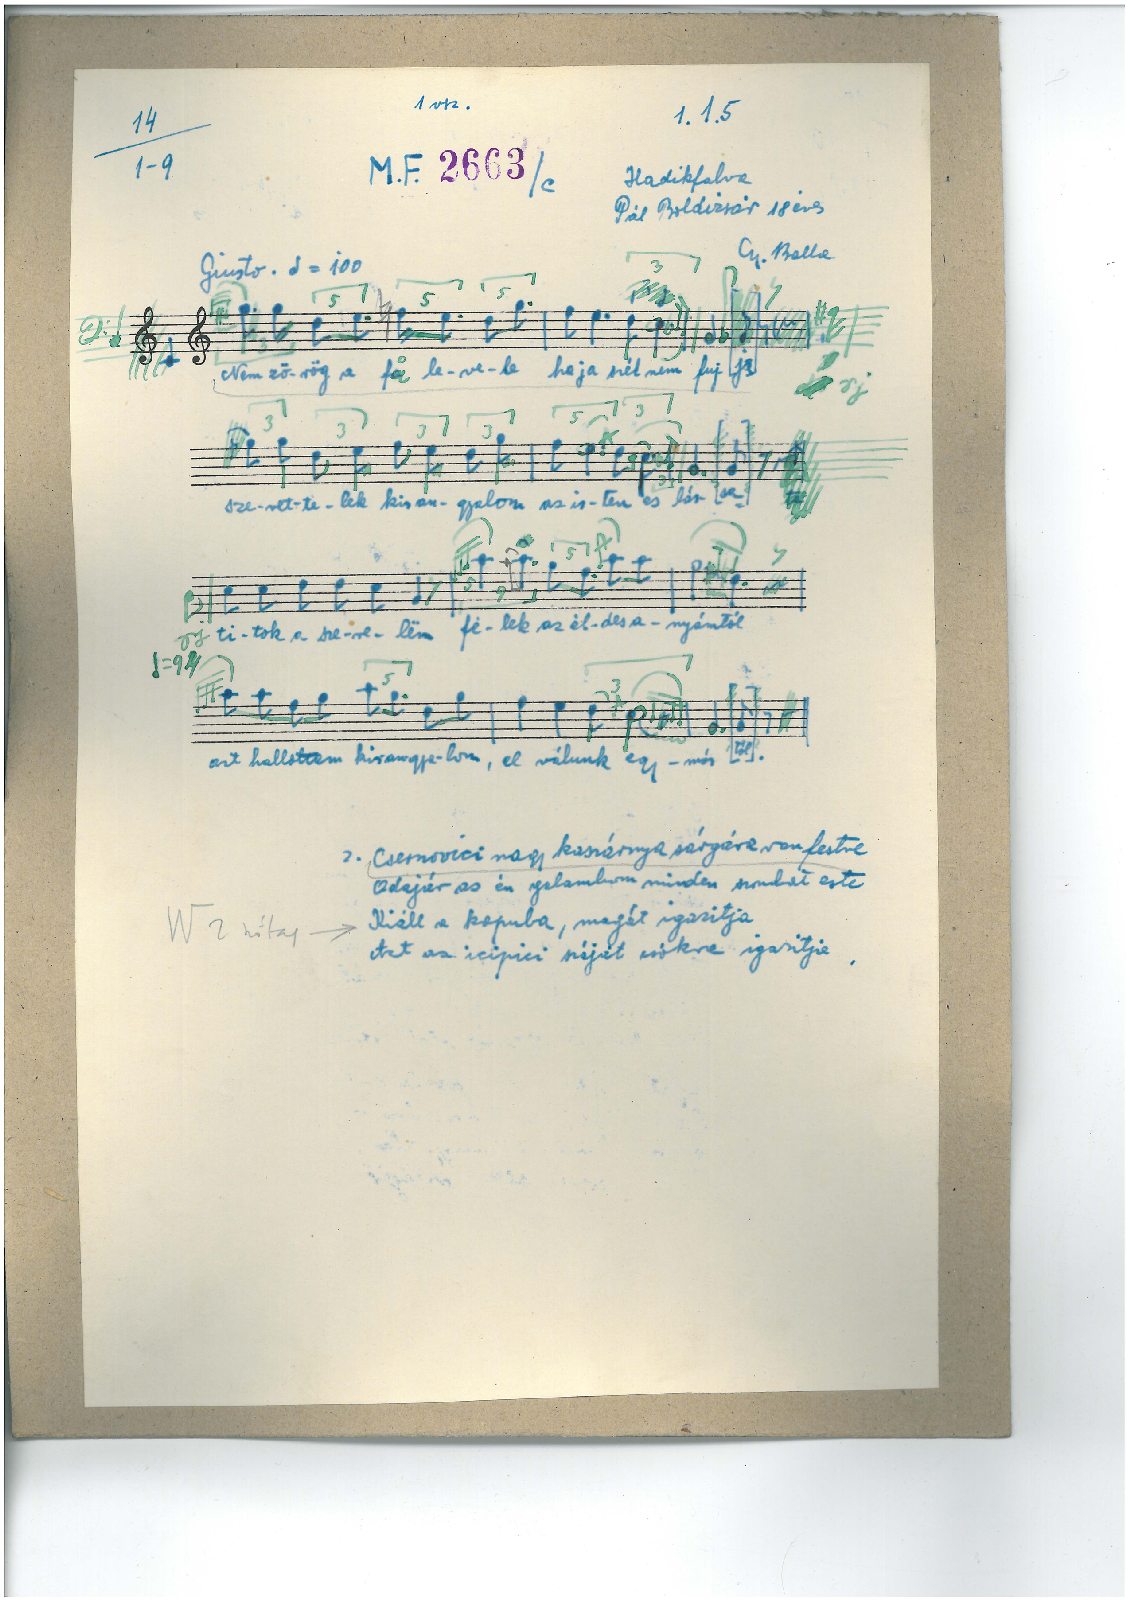 14
1-9
1 vsz.
1. 1.5
M.F. 2663/c
Hadikfalva
Pál Boldizsár 18 éves
Gy. Balla
Giusto. ♩ = 100
3
5 5 5
Nem zö-rög a fa le-ve-le haja szél nem fúj [ja]
3 3 3 3 5 3
sze-ret-te-lek kis an-gyalom az is-ten es lás-
5
ti-tok a sze-re-lëm fé-lek az éldes a-nyámtól
♩=94
5 3
azt hallottam kisangya-lom, el válunk egy-más [tól].
2. Csernovici nagy kaszárnya sárgára van festve
Odajár az én galambom minden szombat este
Kiáll a kapuba, magát igazitja
Azt az icipici száját csókra igazitja.